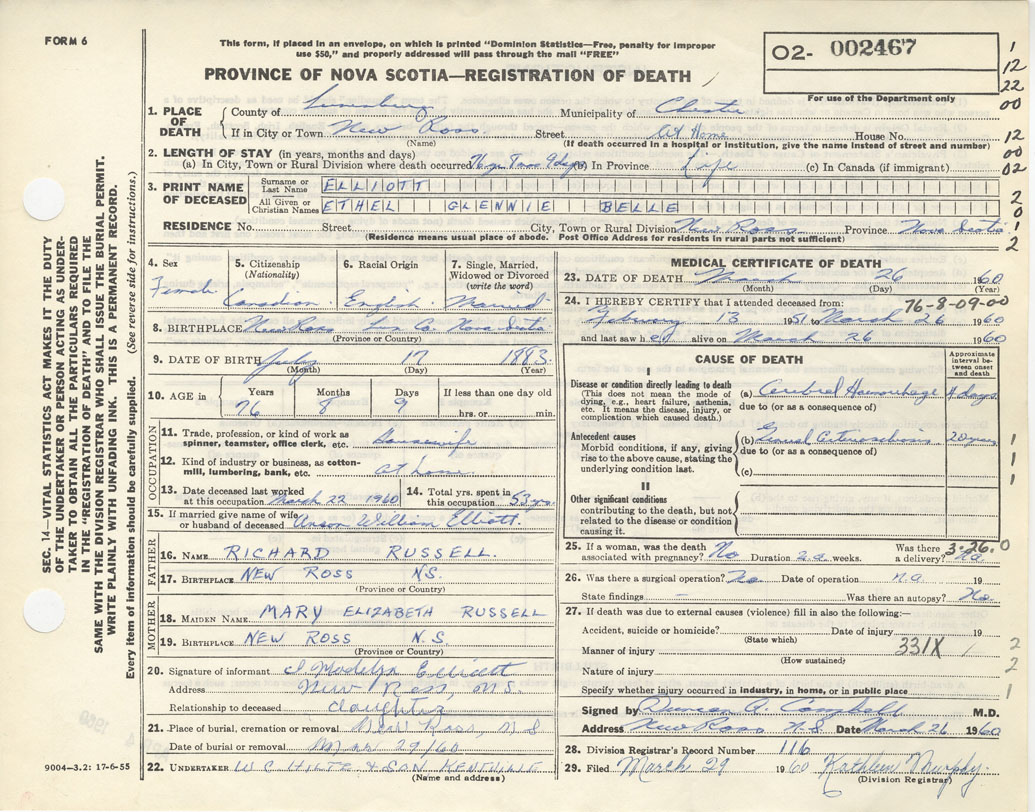 FORM 6
This form, if placed in an envelope, on which is printed "Dominion Statistics—Free, penalty for improper
use $50," and properly addressed will pass through the mail "FREE"
PROVINCE OF NOVA SCOTIA—REGISTRATION OF DEATH
O2- 002467
For use of the Department only
1
12
22
00
12
00
02
2
0
1
2
SEC. 14—VITAL STATISTICS ACT MAKES IT THE DUTY
OF THE UNDERTAKER OR PERSON ACTING AS UNDER-
TAKER TO OBTAIN ALL THE PARTICULARS REQUIRED
IN THE "REGISTRATION OF DEATH" AND TO FILE THE
SAME WITH THE DIVISION REGISTRAR WHO SHALL ISSUE THE BURIAL PERMIT.
WRITE PLAINLY WITH UNFADING INK. THIS IS A PERMANENT RECORD.
Every item of information should be carefully supplied. (See reverse side for instructions.)
1. PLACE OF DEATH
County of Lunenburg Municipality of Chester
If in City or Town New Ross Street At Home House No.
(Name) (If death occurred in a hospital or institution, give the name instead of street and number)
2. LENGTH OF STAY (in years, months and days)
(a) In City, Town or Rural Division where death occurred (b) In Province Life (c) In Canada (if immigrant)
3. PRINT NAME OF DECEASED
Surname or Last Name ELLIOTT
All Given or Christian Names ETHEL GLENNIE BELLE
RESIDENCE No. Street City, Town or Rural Division New Ross Province Nova Scotia
(Residence means usual place of abode. Post Office Address for residents in rural parts not sufficient)
4. Sex 5. Citizenship 6. Racial Origin 7. Single, Married,
(Nationality) Widowed or Divorced
(write the word)
Female Canadian English Married
8. BIRTHPLACE New Ross Lun Co. Nova Scotia
(Province or Country)
9. DATE OF BIRTH July 17 1883
(Month) (Day) (Year)
10. AGE in Years Months Days If less than one day
76 8 9 hrs. or min.
OCCUPATION
11. Trade, profession, or kind of work as
spinner, teamster, office clerk, etc. Housewife
12. Kind of industry or business, as cotton-
mill, lumbering, bank, etc. at home
13. Date deceased last worked
at this occupation March 22 1960
14. Total yrs. spent in
this occupation 53 yrs.
15. If married give name of wife
or husband of deceased Anson William Elliott.
FATHER
16. NAME RICHARD RUSSELL.
17. BIRTHPLACE NEW ROSS N.S.
(Province or Country)
MOTHER
18. MAIDEN NAME MARY ELIZABETH RUSSELL
19. BIRTHPLACE NEW ROSS N.S.
(Province or Country)
20. Signature of informant Madelyn Elliott
Address New Ross, N.S.
Relationship to deceased daughter
21. Place of burial, cremation or removal New Ross, N S
Date of burial or removal Mar 29/60
22. UNDERTAKER W C HILTZ & SON KENTVILLE
(Name and address)
9004—3.2: 17-6-55
MEDICAL CERTIFICATE OF DEATH
23. DATE OF DEATH March 26 1960
(Month) (Day) (Year)
24. I HEREBY CERTIFY that I attended deceased from:
76-8-09-00
February 13 1951 to March 26 1960
and last saw her alive on March 26 1960
CAUSE OF DEATH
Approximate interval between onset and death
I
Disease or condition directly leading to death
(This does not mean the mode of
dying, e.g., heart failure, asthenia,
etc. It means the disease, injury, or
complication which caused death.)
(a) Cerebral Haemorrhage 4 days
due to (or as a consequence of)
Antecedent causes
Morbid conditions, if any, giving
rise to the above cause, stating the
underlying condition last.
(b) General Arteriosclerosis 20 years
due to (or as a consequence of)
(c)
1
1
1
II
Other significant conditions
contributing to the death, but not
related to the disease or condition
causing it.
25. If a woman, was the death Was there
associated with pregnancy? No Duration n.a. weeks. a delivery? na
3-26.0
26. Was there a surgical operation? No Date of operation n.a. 19
State findings — Was there an autopsy? No.
27. If death was due to external causes (violence) fill in also the following:—
Accident, suicide or homicide? Date of injury 19
(State which)
Manner of injury 331X
(How sustained)
Nature of injury
Specify whether injury occurred in industry, in home, or in public place
1
2
2
1
Signed by Duncan A. Campbell M.D.
Address New Ross N.S. Date March 26 1960
28. Division Registrar's Record Number 116
29. Filed March 29 1960 Kathleen Murphy.
(Division Registrar)